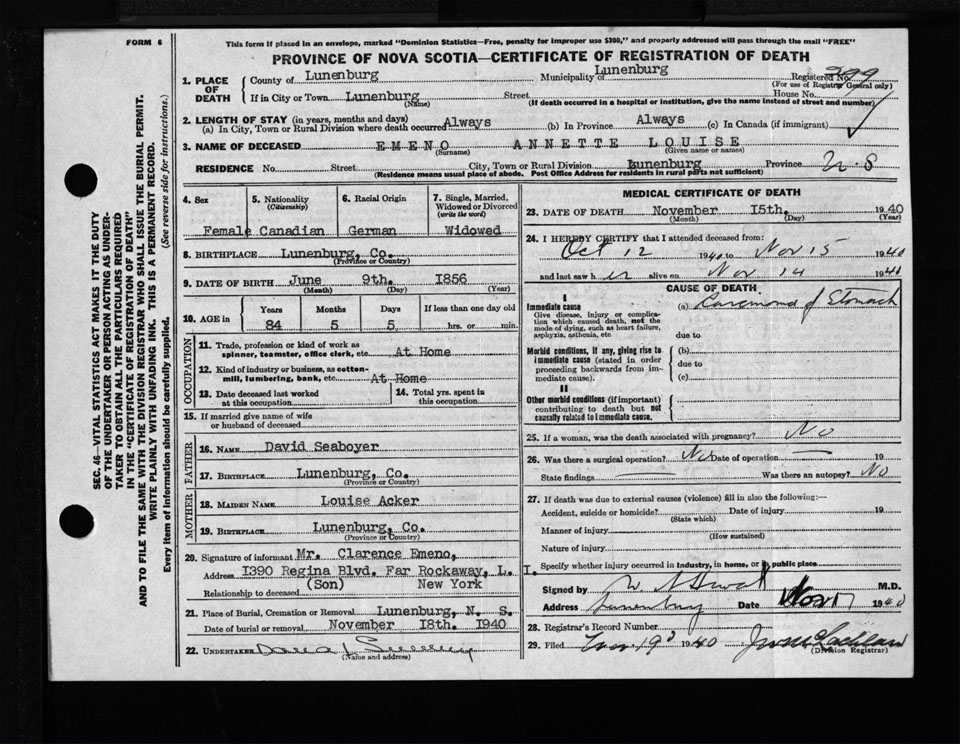 FORM 6
This form if placed in an envelope, marked "Dominion Statistics—Free, penalty for improper use $300," and properly addressed will pass through the mail "FREE"
PROVINCE OF NOVA SCOTIA—CERTIFICATE OF REGISTRATION OF DEATH
1. PLACE OF DEATH
County of Lunenburg Municipality of Lunenburg Registered No. 399
(For use of Registrar General only)
If in City or Town Lunenburg Street House No.
(Name) (If death occurred in a hospital or institution, give the name instead of street and number)
2. LENGTH OF STAY (in years, months and days)
(a) In City, Town or Rural Division where death occurred Always (b) In Province Always (c) In Canada (if immigrant)
3. NAME OF DECEASED EMENO ANNETTE LOUISE
(Surname) (Given name or names)
RESIDENCE No. Street City, Town or Rural Division Lunenburg Province N.S
(Residence means usual place of abode. Post Office Address for residents in rural parts not sufficient)
4. Sex
Female
5. Nationality
(Citizenship)
Canadian
6. Racial Origin
German
7. Single, Married, Widowed or Divorced
(write the word)
Widowed
8. BIRTHPLACE Lunenburg, Co.
(Province or Country)
9. DATE OF BIRTH June 9th. 1856
(Month) (Day) (Year)
10. AGE in Years Months Days If less than one day old
84 5 5 hrs. or min.
OCCUPATION
11. Trade, profession or kind of work as
spinner, teamster, office clerk, etc. At Home
12. Kind of industry or business, as cotton-
mill, lumbering, bank, etc. At Home
13. Date deceased last worked
at this occupation
14. Total yrs. spent in
this occupation
15. If married give name of wife
or husband of deceased
FATHER
16. NAME David Seaboyer
17. BIRTHPLACE Lunenburg, Co.
(Province or Country)
MOTHER
18. MAIDEN NAME Louise Acker
19. BIRTHPLACE Lunenburg, Co.
(Province or Country)
20. Signature of informant Mr. Clarence Emeno,
Address 1390 Regina Blvd. Far Rockaway, L. I.
Relationship to deceased (Son) New York
21. Place of Burial, Cremation or Removal Lunenburg, N. S.
Date of burial or removal November 18th. 1940
22. UNDERTAKER
(Name and address)
MEDICAL CERTIFICATE OF DEATH
23. DATE OF DEATH November 15th. 1940
(Month) (Day) (Year)
24. I HEREBY CERTIFY that I attended deceased from:
Oct 12 1940 to Nov 15 1940
and last saw her alive on Nov 14 1940
CAUSE OF DEATH
I
Immediate cause (a) of Stomach
Give disease, injury or complica-
tion which caused death, not the
mode of dying, such as heart failure,
asphyxia, asthenia, etc. due to
Morbid conditions, if any, giving rise to (b)
immediate cause (stated in order due to
proceeding backwards from im-
mediate cause). (c)
II
Other morbid conditions (if important)
contributing to death but not
causally related to immediate cause.
25. If a woman, was the death associated with pregnancy? No
26. Was there a surgical operation? No Date of operation 19
State findings Was there an autopsy? No
27. If death was due to external causes (violence) fill in also the following:—
Accident, suicide or homicide? Date of injury 19
(State which)
Manner of injury
(How sustained)
Nature of injury
Specify whether injury occurred in industry, in home, or in public place
Signed by M.D.
Address Lunenburg Date Nov 17 1940
28. Registrar's Record Number
29. Filed Nov. 19 1940
(Division Registrar)
SEC. 46—VITAL STATISTICS ACT MAKES IT THE DUTY
OF THE UNDERTAKER OR PERSON ACTING AS UNDER-
TAKER TO OBTAIN ALL THE PARTICULARS REQUIRED
IN THE "CERTIFICATE OF REGISTRATION OF DEATH"
AND TO FILE THE SAME WITH THE DIVISION REGISTRAR WHO SHALL ISSUE THE BURIAL PERMIT.
WRITE PLAINLY WITH UNFADING INK. THIS IS A PERMANENT RECORD.
Every item of information should be carefully supplied. (See reverse side for instructions.)